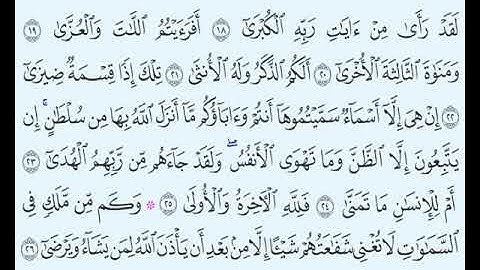 لَقَدْ رَأَىٰ مِنْ ءَايَٰتِ رَبِّهِ ٱلْكُبْرَىٰٓ ١٨ أَفَرَءَيْتُمُ ٱللَّٰتَ وَٱلْعُزَّىٰ ١٩
وَمَنَوٰةَ ٱلثَّالِثَةَ ٱلْأُخْرَىٰٓ ٢٠ أَلَكُمُ ٱلذَّكَرُ وَلَهُ ٱلْأُنثَىٰ ٢١ تِلْكَ إِذًا قِسْمَةٌ ضِيزَىٰٓ
٢٢ إِنْ هِىَ إِلَّآ أَسْمَآءٌ سَمَّيْتُمُوهَآ أَنتُمْ وَءَابَآؤُكُم مَّآ أَنزَلَ ٱللَّهُ بِهَا مِن سُلْطَٰنٍ ۚ إِن
يَتَّبِعُونَ إِلَّا ٱلظَّنَّ وَمَا تَهْوَى ٱلْأَنفُسُ ۖ وَلَقَدْ جَآءَهُم مِّن رَّبِّهِمُ ٱلْهُدَىٰٓ ٢٣
أَمْ لِلْإِنسَٰنِ مَا تَمَنَّىٰ ٢٤ فَلِلَّهِ ٱلْءَاخِرَةُ وَٱلْأُولَىٰ ٢٥ ۞ وَكَم مِّن مَّلَكٍ فِى
ٱلسَّمَٰوَٰتِ لَا تُغْنِى شَفَٰعَتُهُمْ شَيْـًٔا إِلَّا مِنۢ بَعْدِ أَن يَأْذَنَ ٱللَّهُ لِمَن يَشَآءُ وَيَرْضَىٰٓ ٢٦